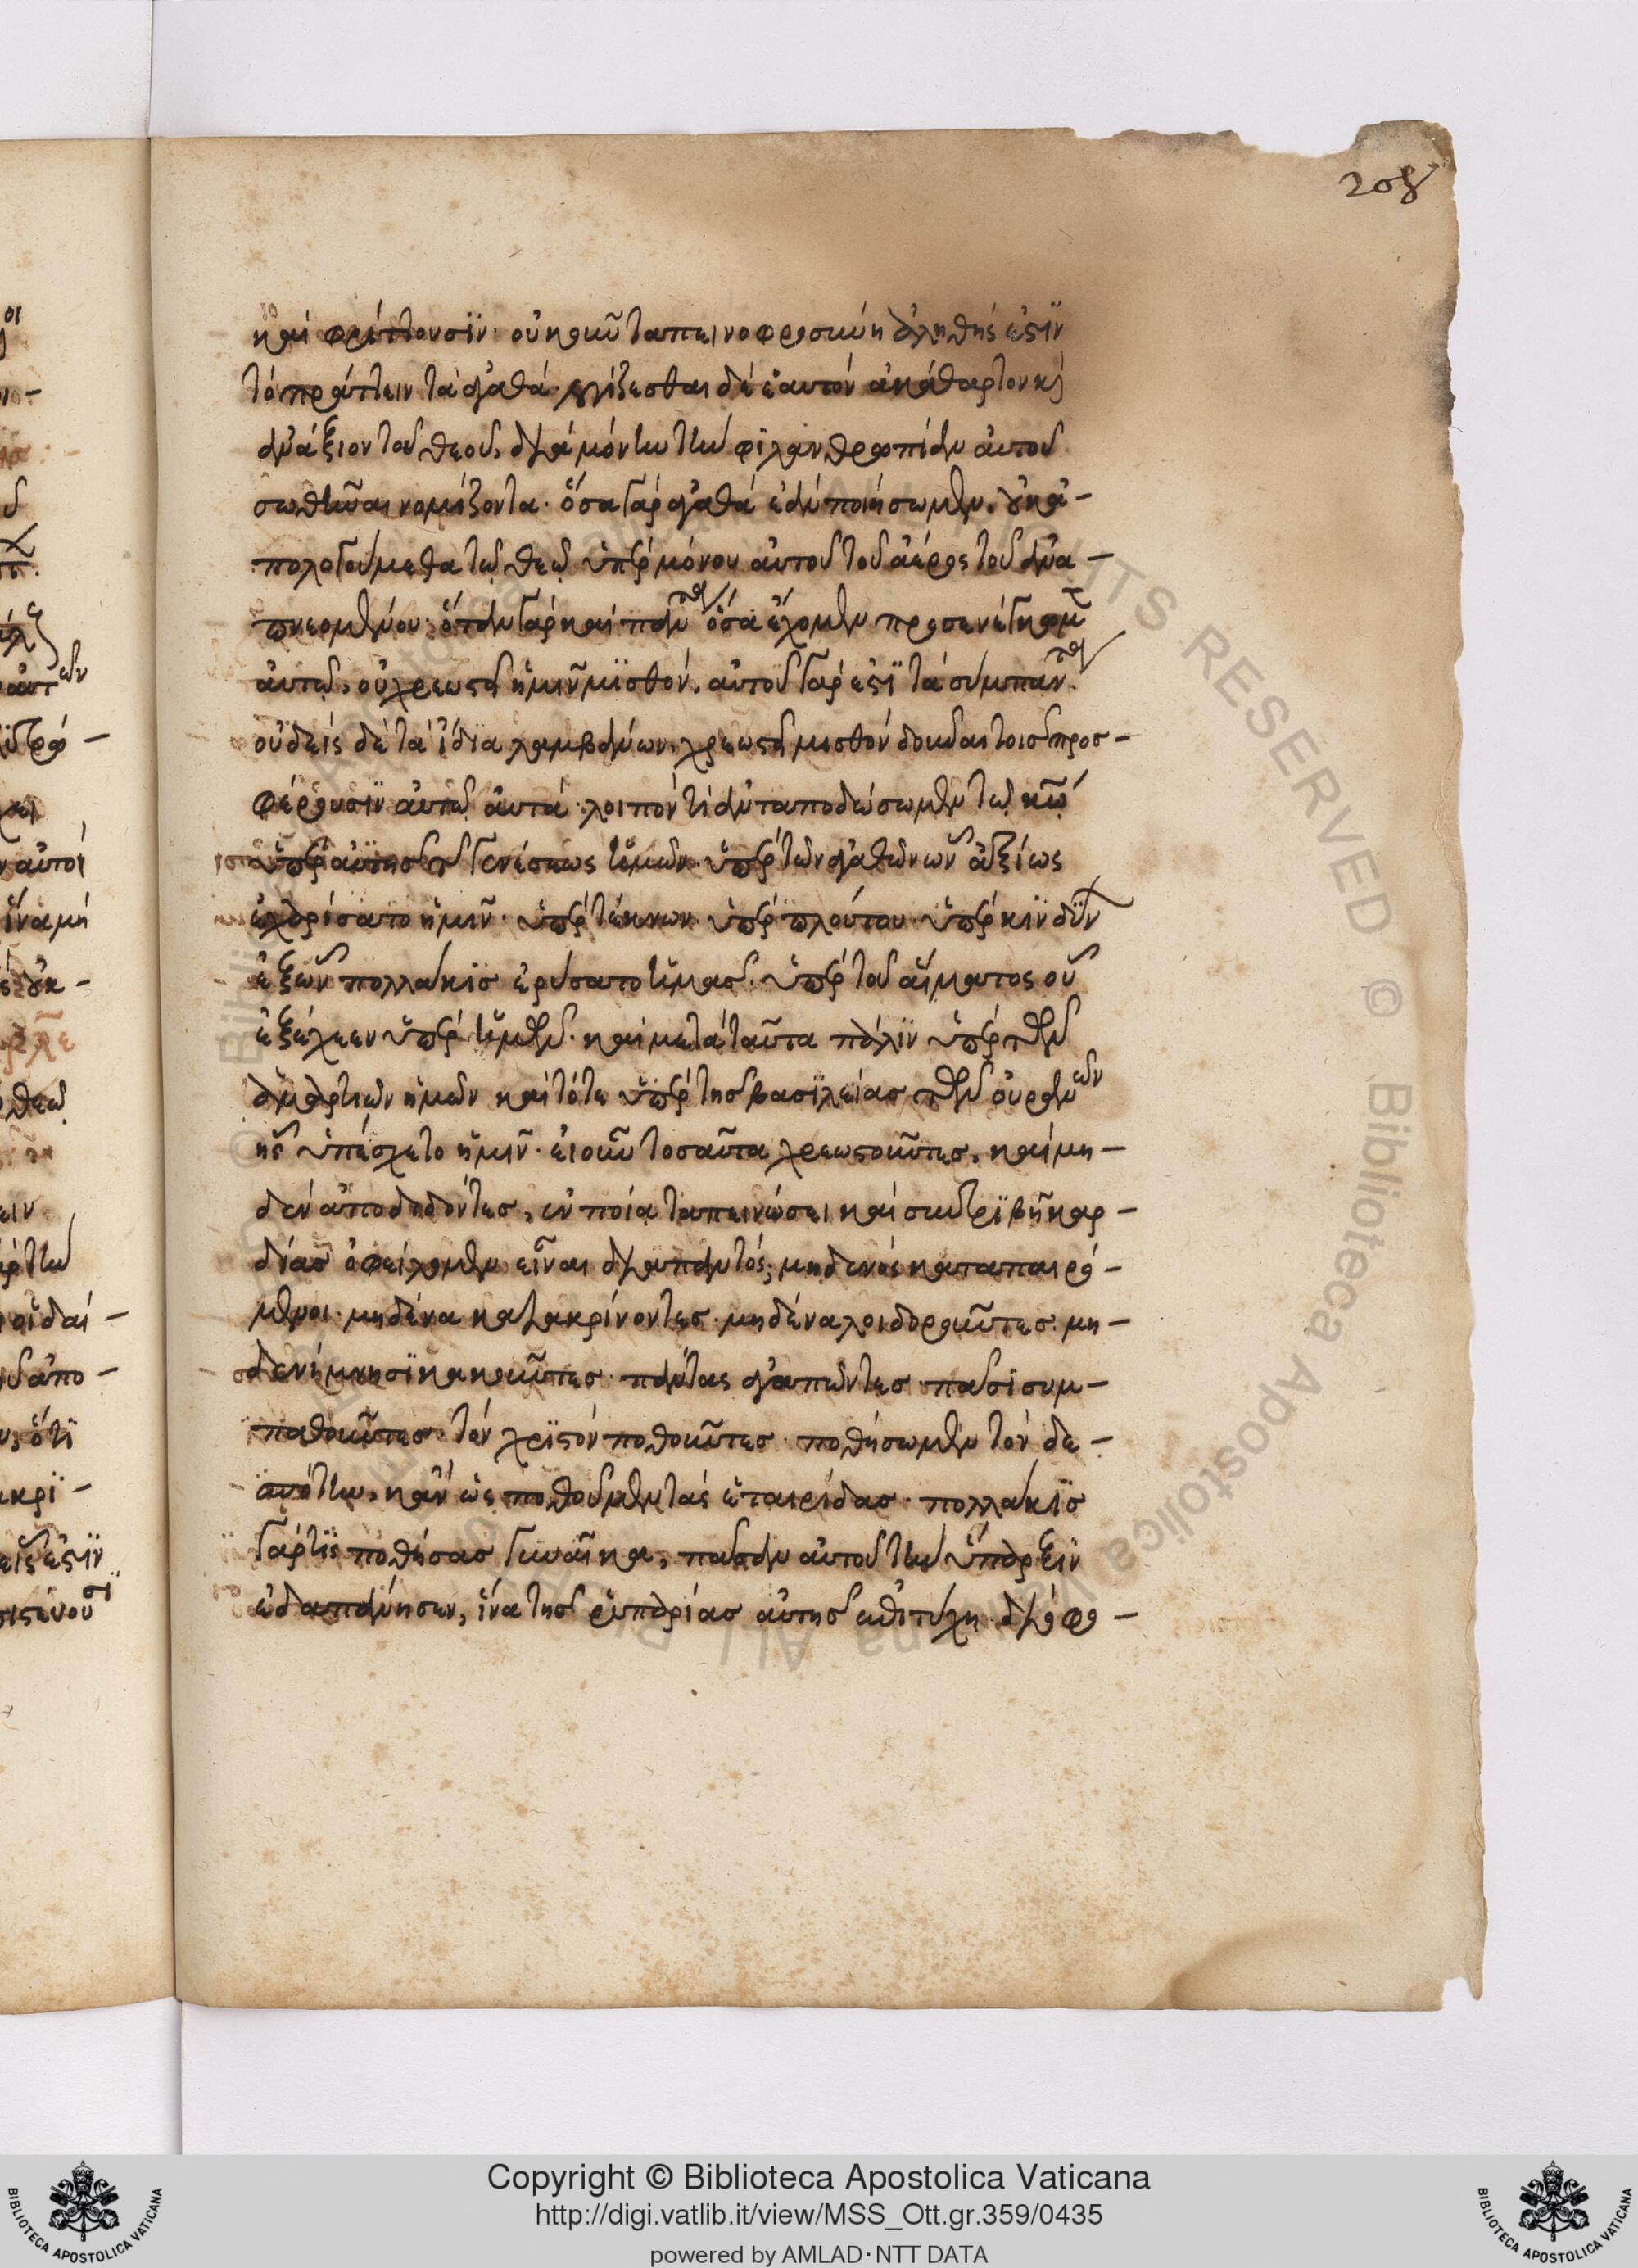 208
καὶ φρίττουσϊν· οὐκοῦν ταπεινοφροσύνη ἀληθής ἐστϊν
τὸ πράττειν τὰ ἀγαθά· λογίζεσθαι δὲ ἑαυτὸν ἀκάθαρτον κ(αὶ)
ἀνάξιον τοῦ θεοῦ, διὰ μόνην τὴν φιλανθρωπίαν αὐτοῦ
σωθῆναι νομίζοντα· ὅσα γὰρ ἀγαθὰ ἐὰν ποιήσωμεν, οὐκ ἀ-
πολογούμεθα τῷ θεῷ ὑπὲρ μόνου αὐτοῦ τοῦ ἀέρος τοῦ ἀνα-
πνεομένου· ὅταν γὰρ καὶ πάντα ὅσα ἔχομεν προσενέγκωμεν
αὐτῷ, οὐ χρεωστεῖ ἡμῖν μϊσθόν, αὐτοῦ γάρ ἐστϊ τὰ σύμπαντα.
οὐδεὶς δὲ τὰ ἴδϊα λαμβάνων, χρεωστεῖ μισθὸν δοῦναι τοῖς προσ-
φέρουσϊν αὐτῷ αὐτά· λοιπὸν τί ἀνταποδώσωμεν τῷ κω
ὑπὲρ αὐτῆς τῆς γενέσεως ἡμῶν· ὑπὲρ τῶν ἀγαθῶν ὧν ἀξίως
ἐχαρίσατο ἡμῖν· ὑπὲρ τέκνων· ὑπὲρ πλούτου· ὑπὲρ κϊνδύνων
ἐξ ὧν πολλάκϊς ἐρύσατο ἡμᾶς· ὑπὲρ τοῦ αἵματος οὗ
ἐξέχεεν ὑπὲρ ἡμῶν· καὶ μετὰ ταῦτα πάλϊν ὑπὲρ τῶν
ἁμαρτιῶν ἡμῶν καὶ τότε ὑπὲρ τῆς βασϊλείας τῶν οὐρανῶν
ἧς ὑπέσχετο ἡμῖν· εἰ οὖν τοσαῦτα χρεωστοῦντες, καὶ μη-
δὲν ἀποδιδόντες, ἐν ποίᾳ ταπεινώσει καὶ συντρϊβῇ καρ-
δίας ὀφείλομεν εἶναι διαπαντός; μηδενὸς κατεπαιρό-
μενοι· μηδένα κατακρίνοντες· μηδένα λοιδοροῦντες· μη-
δενὶ μνησϊκακοῦντες· πάντας ἀγαπῶντες· πᾶσϊ συμ-
παθοῦντες· τὸν χρϊστὸν ποθοῦντες· ποθήσωμεν τὸν δε-
σπότην, κἂν ὡς ποθοῦμεν τὰς ἑταιρίδας· πολλάκϊς
γάρ τϊς ποθήσας γυναῖκα, πᾶσαν αὐτοῦ τὴν ὕπαρξϊν
ἐδαπάνησεν, ἵνα τῆς ῥυπαρίας αὐτῆς ἐπιτύχῃ· διὸ φο-
Copyright © Biblioteca Apostolica Vaticana
http://digi.vatlib.it/view/MSS_Ott.gr.359/0435
powered by AMLAD·NTT DATA